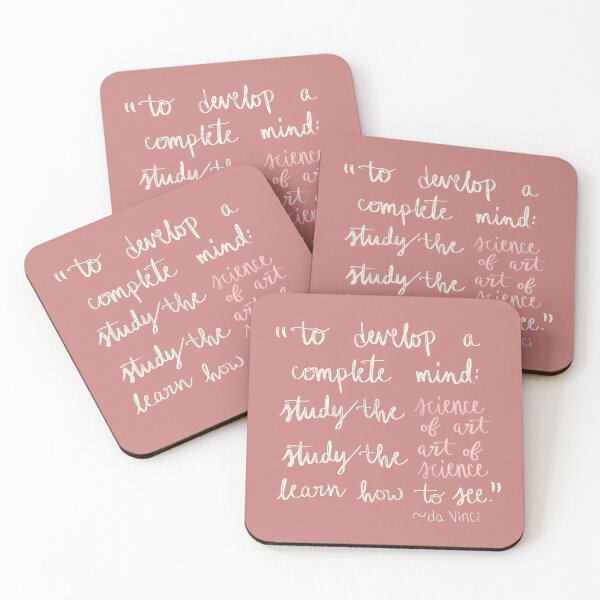 "to develop a
complete mind:
study/the science
of art
art of
science
"to develop a
complete mind:
study/the science
of art
study/the art of
science
see."
"to develop a
complete mind:
study/the science
of art
study/the art
learn how
"to develop a
complete mind:
study/the science
of art
study/the art of
science
learn how to see."
~da Vinci